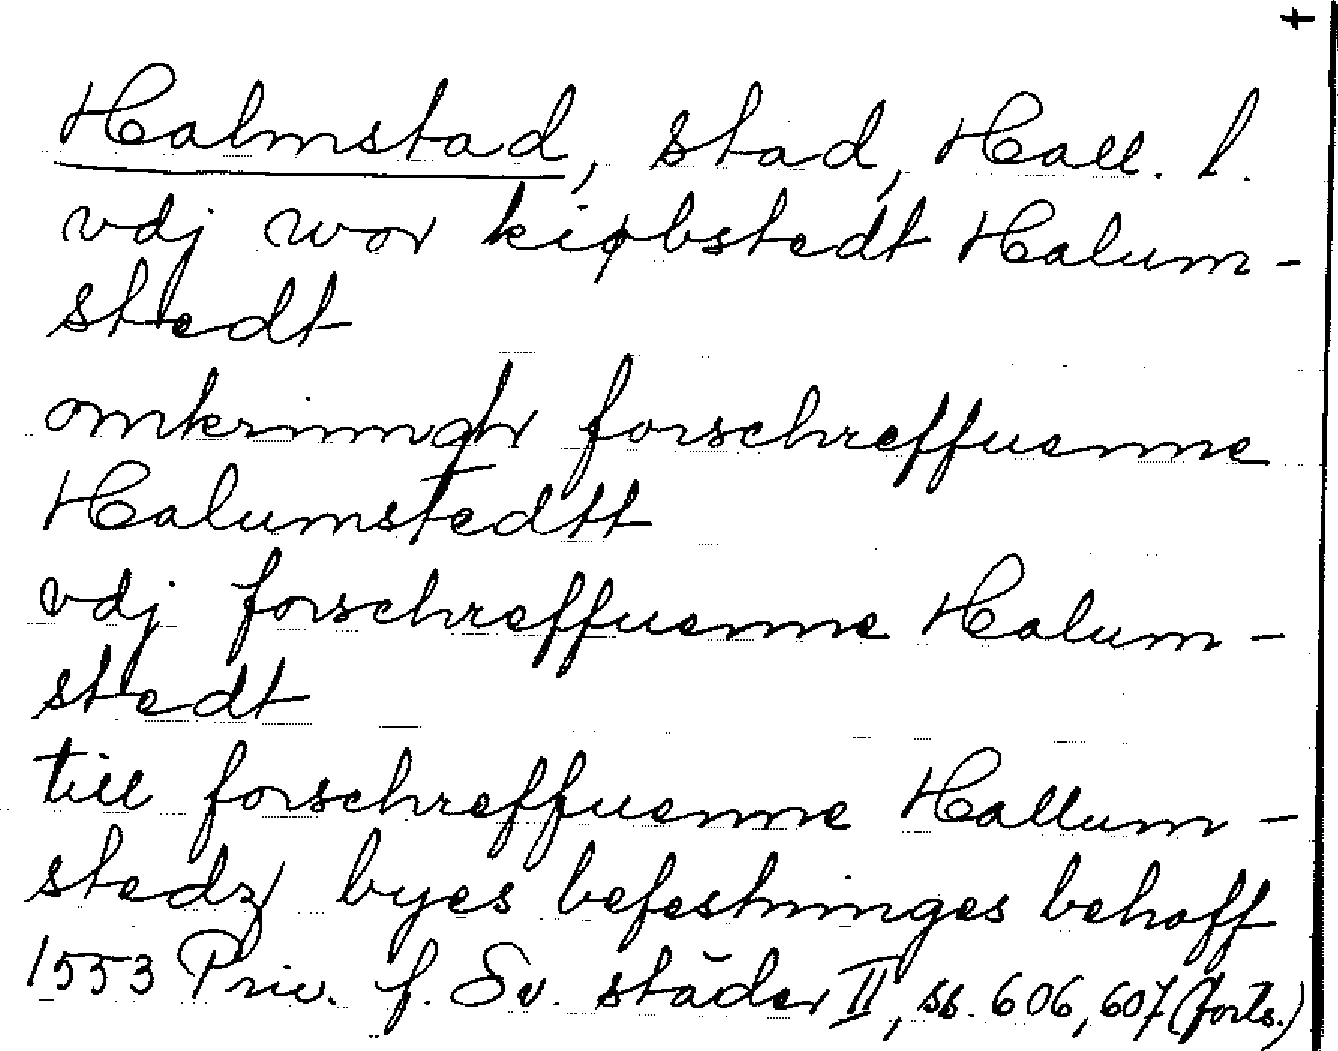 +
Halmstad, stad, Hall. l.
vdj wor kiøbstedt Halum-
stedt
omkrinngh forschreffuenne
Halumstedtt
vdj forschreffuenne Halum-
stedt
till forschreffuenne Hallum-
stedz byes befestninges behoff
1553 Priv. f. Sv. städer II, ss. 606, 607 (forts.)